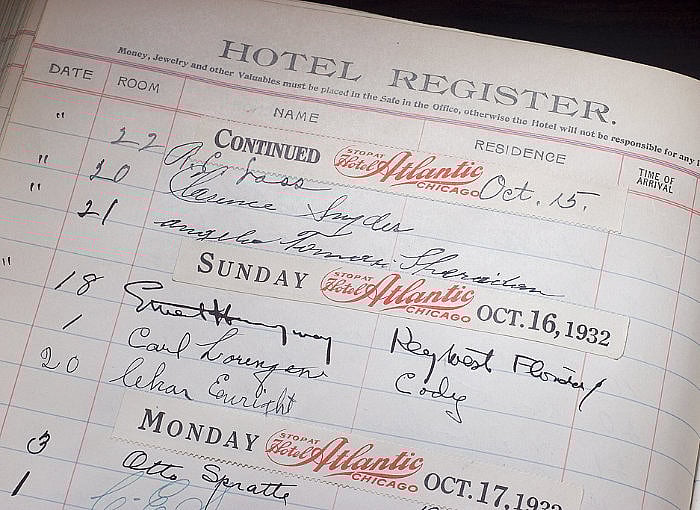 HOTEL REGISTER.
Money, Jewelry and other Valuables must be placed in the Safe in the Office, otherwise the Hotel will not be responsible for any
DATE ROOM NAME RESIDENCE TIME OF ARRIVAL
CONTINUED STOP AT Hotel Atlantic CHICAGO Oct. 15.
" 22
" 20 Clarence Snyder
" 21 Sheridan
SUNDAY STOP AT Hotel Atlantic CHICAGO OCT. 16, 1932
" 18 Ernest Hemingway Key West Florida
1 Carl Lorenzen Cody
20 Enright
MONDAY STOP AT Hotel Atlantic CHICAGO OCT. 17, 1932
3 Otto Spratte
1